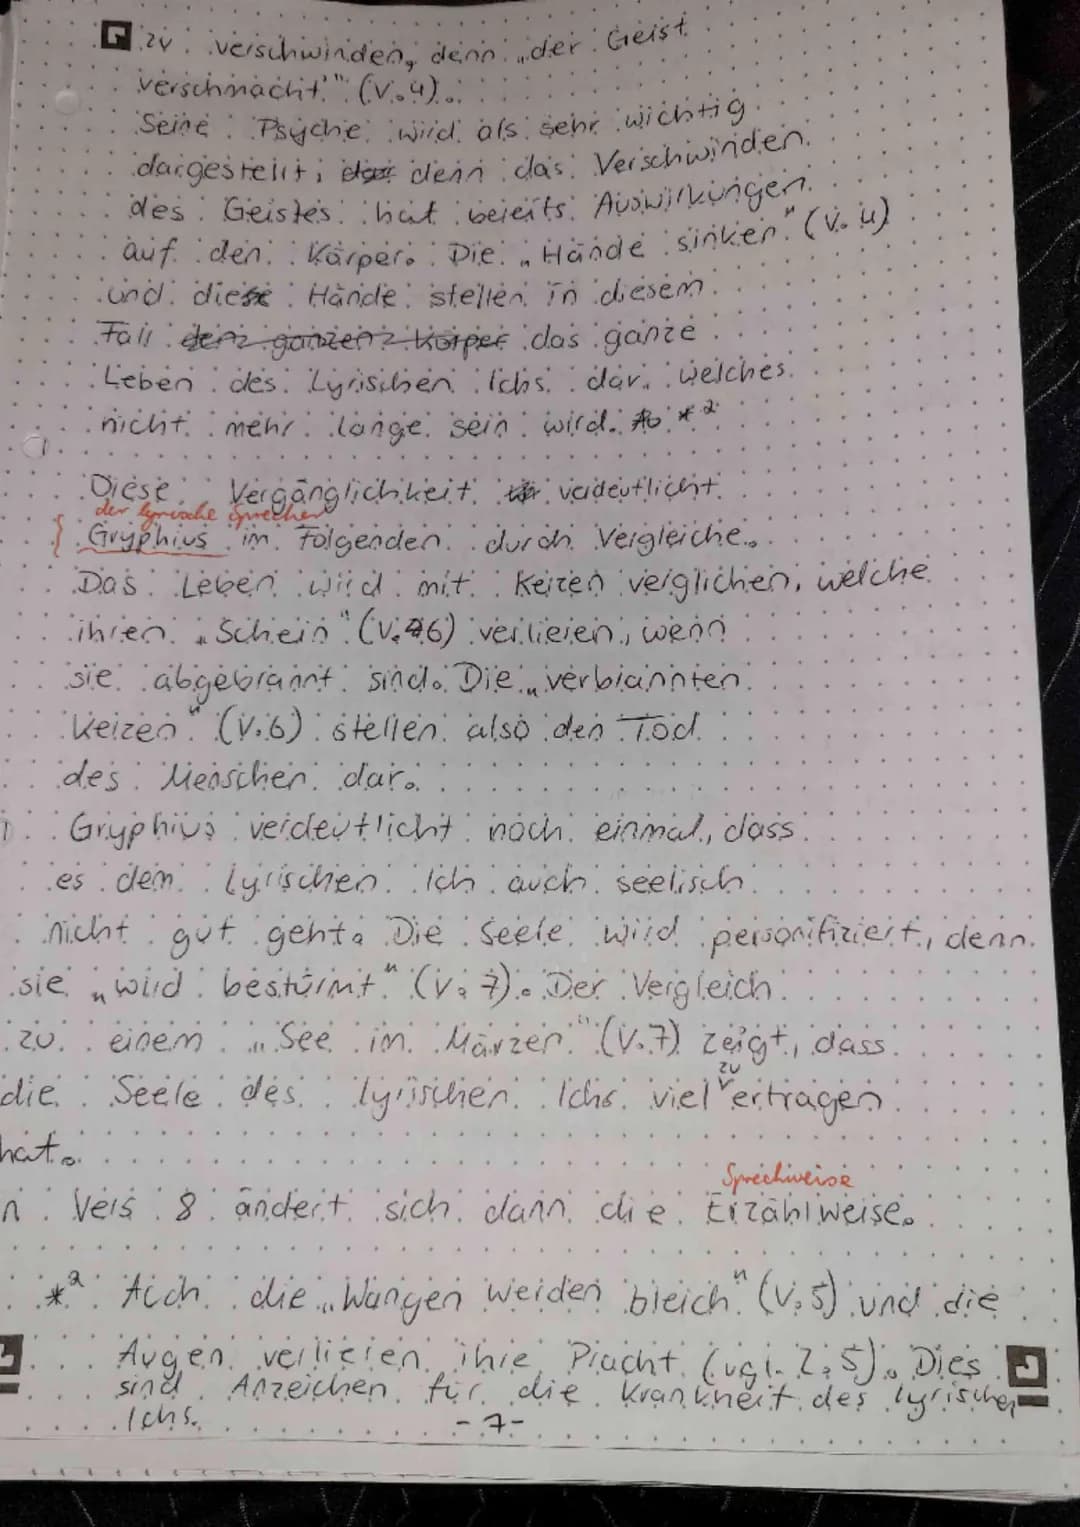 zu verschwinden, denn „der Geist
verschmacht'" (V.4).
Seine Psyche wird als sehr wichtig
dargestellt, denn das Verschwinden
des Geistes hat bereits Auswirkungen
auf den Körper. Die „Hände sinken" (V.4)
und diese Hände stellen in diesem
Fall den ganzen Körper das ganze
Leben des Lyrischen Ichs dar, welches
nicht mehr lange sein wird. *2
Diese Vergänglichkeit verdeutlicht
der lyrische Sprecher
Gryphius im Folgenden durch Vergleiche.
Das Leben wird mit Kerzen verglichen, welche
ihren „Schein" (V.6) verlieren, wenn
sie abgebrannt sind. Die „verbrannten
Kerzen" (V.6) stellen also den Tod
des Menschen dar.
Gryphius verdeutlicht noch einmal, dass
es dem Lyrischen Ich auch seelisch
nicht gut geht. Die Seele wird personifiziert, denn
sie „wird bestürmt" (V.7). Der Vergleich
zu einem „See im Märzen" (V.7) zeigt, dass
zu
die Seele des lyrischen Ichs viel ertragen
hat.
Sprechweise
n Vers 8 ändert sich dann die Erzählweise.
*2 Auch die „Wangen werden bleich" (V.5) und die
Augen verlieren ihre Pracht (vgl. Z.5). Dies
sind Anzeichen für die Krankheit des lyrischen
Ichs.
-7-